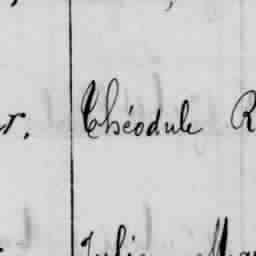 r. Théodule R
Julie Ma